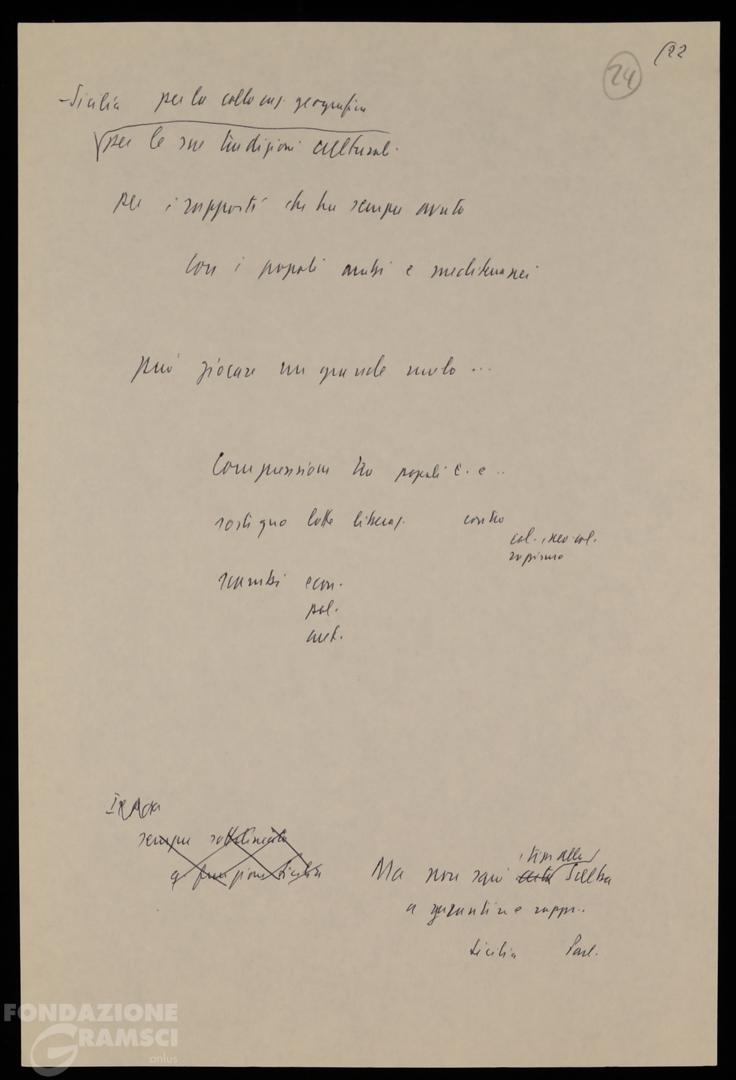 24
122
- Sicilia per la colloca. geografica
per le sue tradizioni culturali.
per i rapporti che ha sempre avuto
con i popoli arabi e mediterranei
può giocare un grande ruolo ...
Comprensione tra popoli E. e ..
sostegno lotte liberaz. contro
col. neo col.
razzismo
scambi econ.
pol.
cult.
sempre sottolineato
q funzione Sicilia
Ma non sarà scelta
a garantire rappr.
Sicilia Parl.
FONDAZIONE
GRAMSCI
onlus